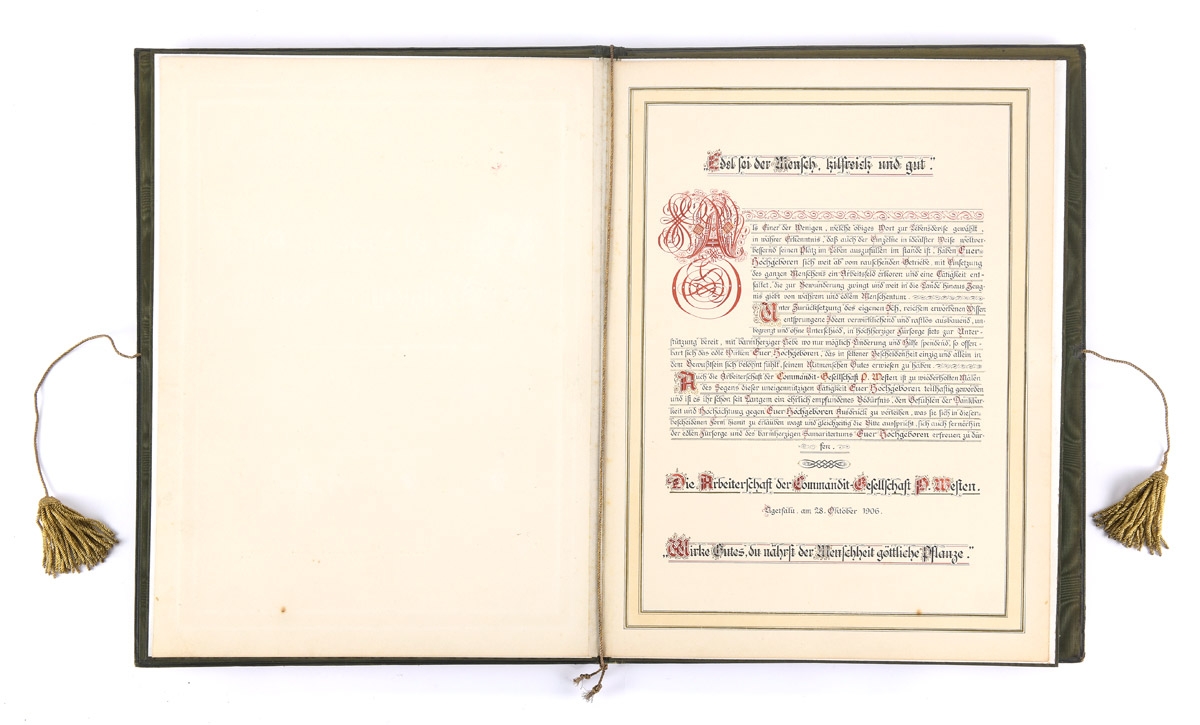 „Edel sei der Mensch, hilfreich und gut.“
Als Einer der Wenigen, welche obiges Wort zur Lebensdevise gewählt,
in wahrer Erkenntnis, daß auch der Einzelne in idealster Weise weltver-
bessernd seinen Platz im Leben auszufüllen im stande ist, haben Euer
Hochgeboren sich weit ab vom rauschenden Getriebe, mit Einsetzung
des ganzen Menschens ein Arbeitsfeld erkoren und eine Tätigkeit ent-
faltet, die zur Bewunderung zwingt und weit in die Lande hinaus Zeug-
nis giebt von wahrem und edlem Menschentum.
Unter Zurücksetzung des eigenen Ich, reichem erworbenen Wissen
entsprungene Ideen verwirklichend und rastlos ausbauend, un-
begrenzt und ohne Unterschied, in hochherziger Fürsorge stets zur Unter-
stützung bereit, mit barmherziger Liebe wo nur möglich Linderung und Hilfe spendend, so offen-
bart sich das edle Wirken Euer Hochgeboren, das in seltener Bescheidenheit einzig und allein in
dem Bewußtsein sich belohnt fühlt, seinem Mitmenschen Gutes erwiesen zu haben.
Auch die Arbeiterschaft der Commandit-Gesellschaft P. Westen ist zu wiederholten Malen
des Segens dieser uneigennützigen Tätigkeit Euer Hochgeboren teilhaftig geworden
und ist es ihr schon seit Langem ein ehrlich empfundenes Bedürfnis, den Gefühlen der Dankbar-
keit und Hochachtung gegen Euer Hochgeboren Ausdruck zu verleihen, was sie sich in dieser
bescheidenen Form hiemit zu erlauben wagt und gleichzeitig die Bitte ausspricht, sich auch fernerhin
der edlen Fürsorge und des barmherzigen Samaritertums Euer Hochgeboren erfreuen zu dür-
fen.
Die Arbeiterschaft der Commandit-Gesellschaft P. Westen.
am 28. Oktober 1906.
„Wirke Gutes, du nährst der Menschheit göttliche Pflanze.“